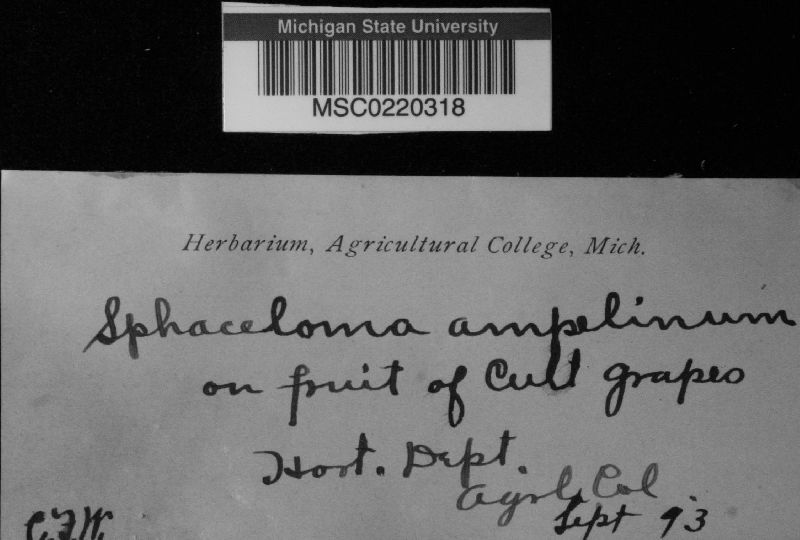 Michigan State University
MSC0220318
Herbarium, Agricultural College, Mich.
Sphaceloma ampelinum
on fruit of Cult grapes
Hort. Dept.
Agrl. Col
Sept 93
C.F.W.